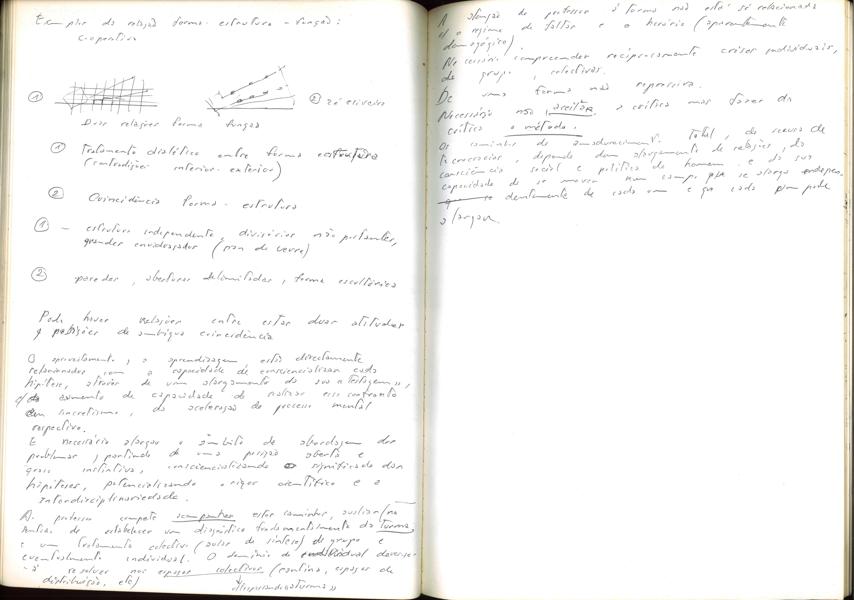 Exemplos da relação forma-estrutura-função:
Cooperativa
① ② Zé Oliveira
Duas relações forma função
① Tratamento dialético entre forma estrutura
(contradições interior-exterior)
② Coincidência forma-estrutura
① - estrutura independente, divisórias não portantes,
grandes envidraçados (pan de verre)
② paredes, aberturas delimitadas, forma escultórica
Pode haver relações entre estas duas atitudes
q posições de ambígua coincidência
O aproveitamento, a aprendizagem, está directamente
relacionado com a capacidade de consciencializar cada
hipótese, através de um alargamento da sua
do aumento de capacidade de realizar esse confronto
em sincretismo, da aceleração do processo mental
respectivo.
É necessário alargar o âmbito de abordagem dos
problemas, partindo de uma posição aberta e
quase instintiva, consciencializando o significado das
hipóteses, potencializando o rigor científico e a
interdisciplinariedade.
Ao professor compete acompanhar estes caminhos, avaliar (na
de estabelecer um diagnóstico fundamentalmente da turma,
e um tratamento colectivo (aulas de síntese) de grupo e
eventualmente individual. O domínio do individual deverá-
-se resolver nos espaços colectivos (cantina, espaços de
distribuição, etc)
A atenção do professor à turma não está só relacionada
c/ o regime de faltas e o horário (aparentemente
demagógico).
Necessário compreender reciprocamente crises individuais,
de grupo, colectivas.
De uma forma não repressiva.
Necessário não aceitar a crítica mas fazer da
crítica o método.
Os caminhos de amadurecimento. Total, da recusa de
tecnocracias, depende dum alargamento de relações, da
consciência social e política do homem e da sua
capacidade de se mover num campo que se alarga indepen-
dentemente de cada um e que cada um pode
alargar.